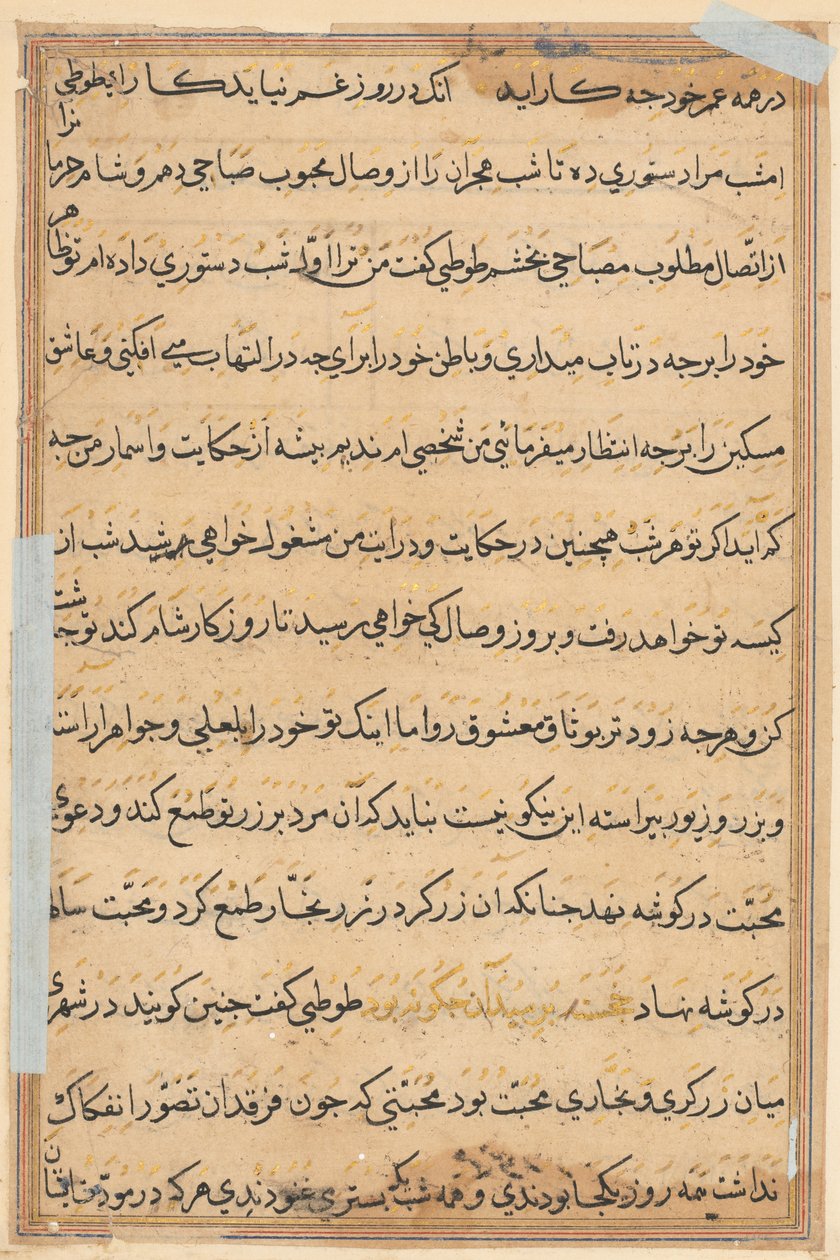 درهمه عمر خود جه کار اید انک در روز غم نیاید کار ای طوطی
امشب مرا دستوری ده تا شب هجران را از وصال محبوب صباحی دهم و شام حرما نرا
از اتّصال مطلوب مصباحی بخشم طوطی کفت من ترا اوّل شب دستوری داده ام تو ظا هر
خود را برجه در تاب میداری و باطن خود را برای جه در التهاب می افکنی و عاشق
مسکین را برجه انتظار میفرمائی من شخصی ام ندیم بیشه از حکایت و اسمار من جه
کم آید اکر تو هر شب همچنین در حکایت و درایت من مشغول خواهی شد شب از
کیسه تو خواهد رفت و بروز وصال کی خواهی رسید تا روز کار شام کند تو جا شت
کن و هرجه زود تر بوثاق معشوق رو اما اینک تو خود را بلعلی و جواهر اراسته
و بزر و زیور بیراسته این نیکو نیست نباید که آن مرد بر زر تو طمع کند و دعوی
محبّت در کوشه نهد جنانکه ان زرکر در زر نجّار طمع کرد و محبّت ساله
در کوشه نهاد خجسته برسید آن جکونه بود طوطی کفت جنین کویند در شهری
میان زرکری و نجّاری محبّت بود محبّتی که جون فرقدان تصوّر انفکاک
نداشت همه روز یکجا بودندی و همه شب یک بستری غنودندی هرکه در مودّت ایشا ن